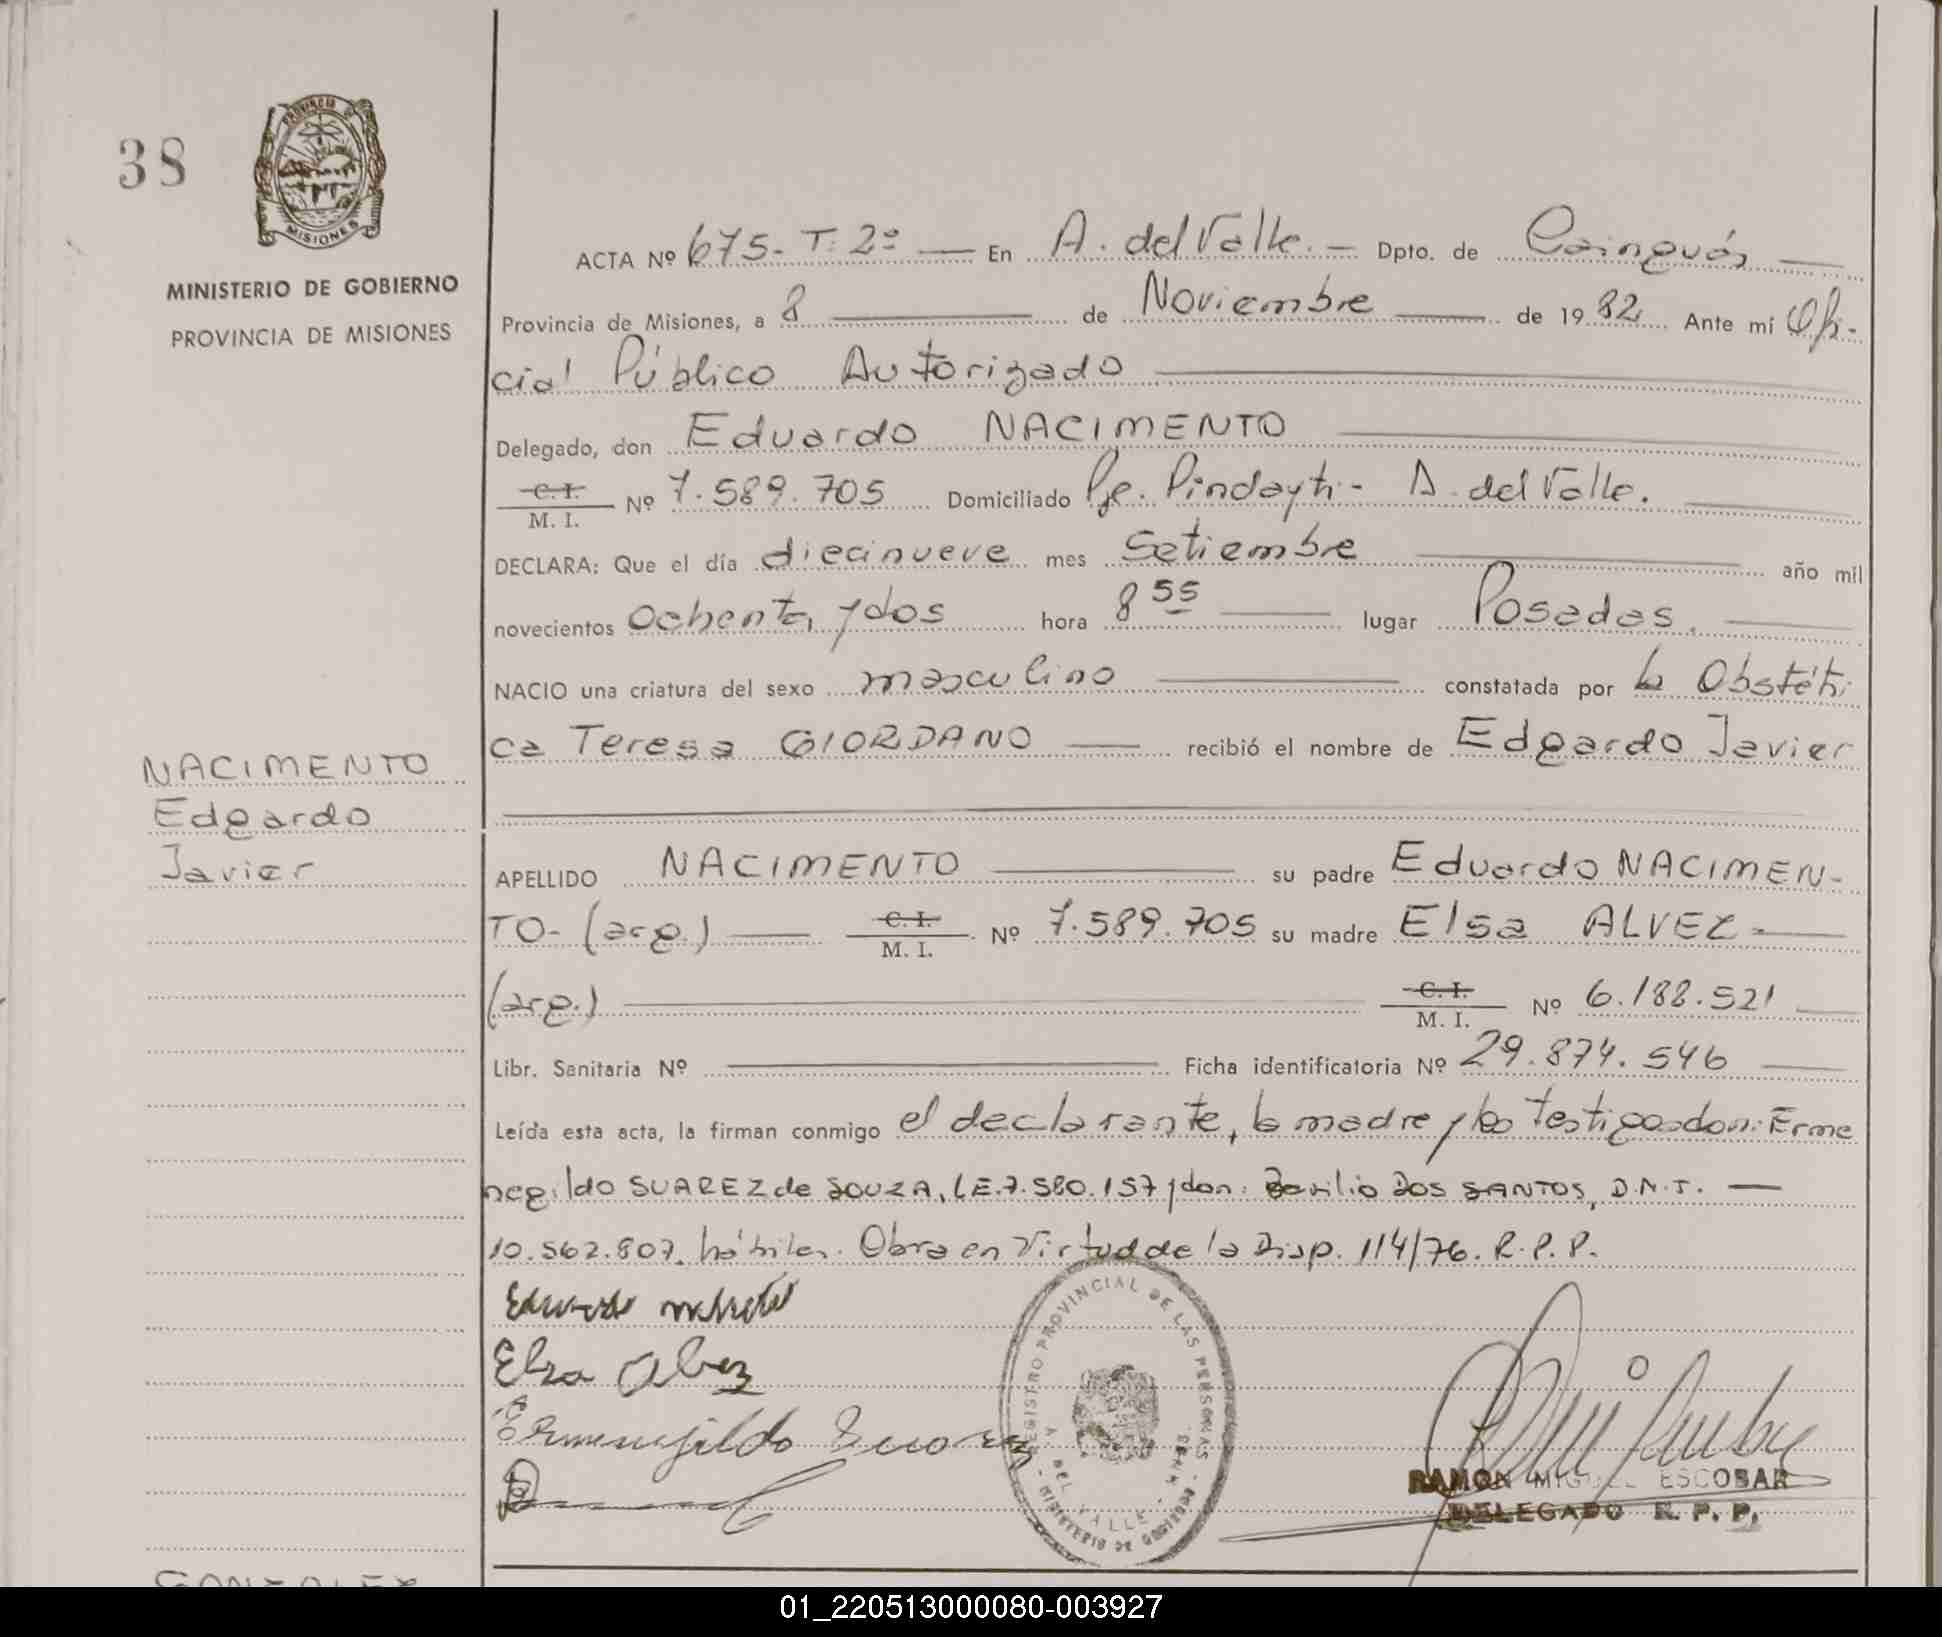 38
PROVINCIA DE
MISIONES
MINISTERIO DE GOBIERNO
PROVINCIA DE MISIONES
ACTA Nº 675- T: 2º — En A. del Valle. — Dpto. de Cainguás —
Provincia de Misiones, a 8 — de Noviembre — de 1982 Ante mí Ofi-
cial Público Autorizado —
Delegado, don Eduardo NACIMENTO —
C. I.
M. I. Nº 7.589.705 Domiciliado Pje. Pindayti - A. del Valle. —
DECLARA: Que el día diecinueve mes Setiembre — año mil
novecientos ochenta y dos hora 8 55 — lugar Posadas. —
NACIO una criatura del sexo masculino — constatada por la Obstétri
ca Teresa GIORDANO — recibió el nombre de Edgardo Javier
NACIMENTO
Edgardo
Javier
APELLIDO NACIMENTO — su padre Eduardo NACIMEN-
TO- (arg.) — C. I.
M. I. Nº 7.589.705 su madre Elsa ALVEZ - —
(arg.) — C. I.
M. I. Nº 6.188.521 —
Libr. Sanitaria Nº — Ficha identificatoria Nº 29.874.546 —
Leída esta acta, la firman conmigo el declarante, la madre y los testigos don: Erme
negildo SUAREZ de SOUZA, LE.7.580.157 y don: Basilio DOS SANTOS, D.N.I. —
10.562.807. hábiles. Obra en Virtud de la Disp. 114/76. R.P.P.
Elsa Alvez
Ermenegildo Suarez
REGISTRO PROVINCIAL DE LAS PERSONAS
DEL VALLE
MINISTERIO DE GOBIERNO
RAMON MIGUEL ESCOBAR
DELEGADO R. P. P.
GONZALEZ
01_220513000080-003927